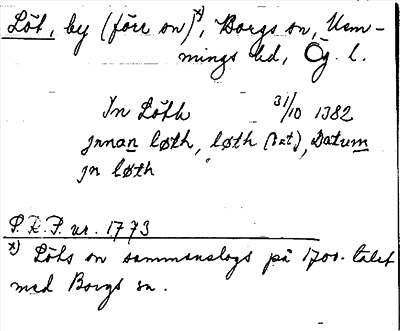 Löt, by (förr sn)*), Borgs sn, Mem-
mings hd, Ög. l.
In Löth 31/10 1382
jnnan løth, løth (dat), Datum
jn løth
S.R.P. nr. 1773
*) Löts sn sammanslogs på 1700-talet
med Borgs sn.